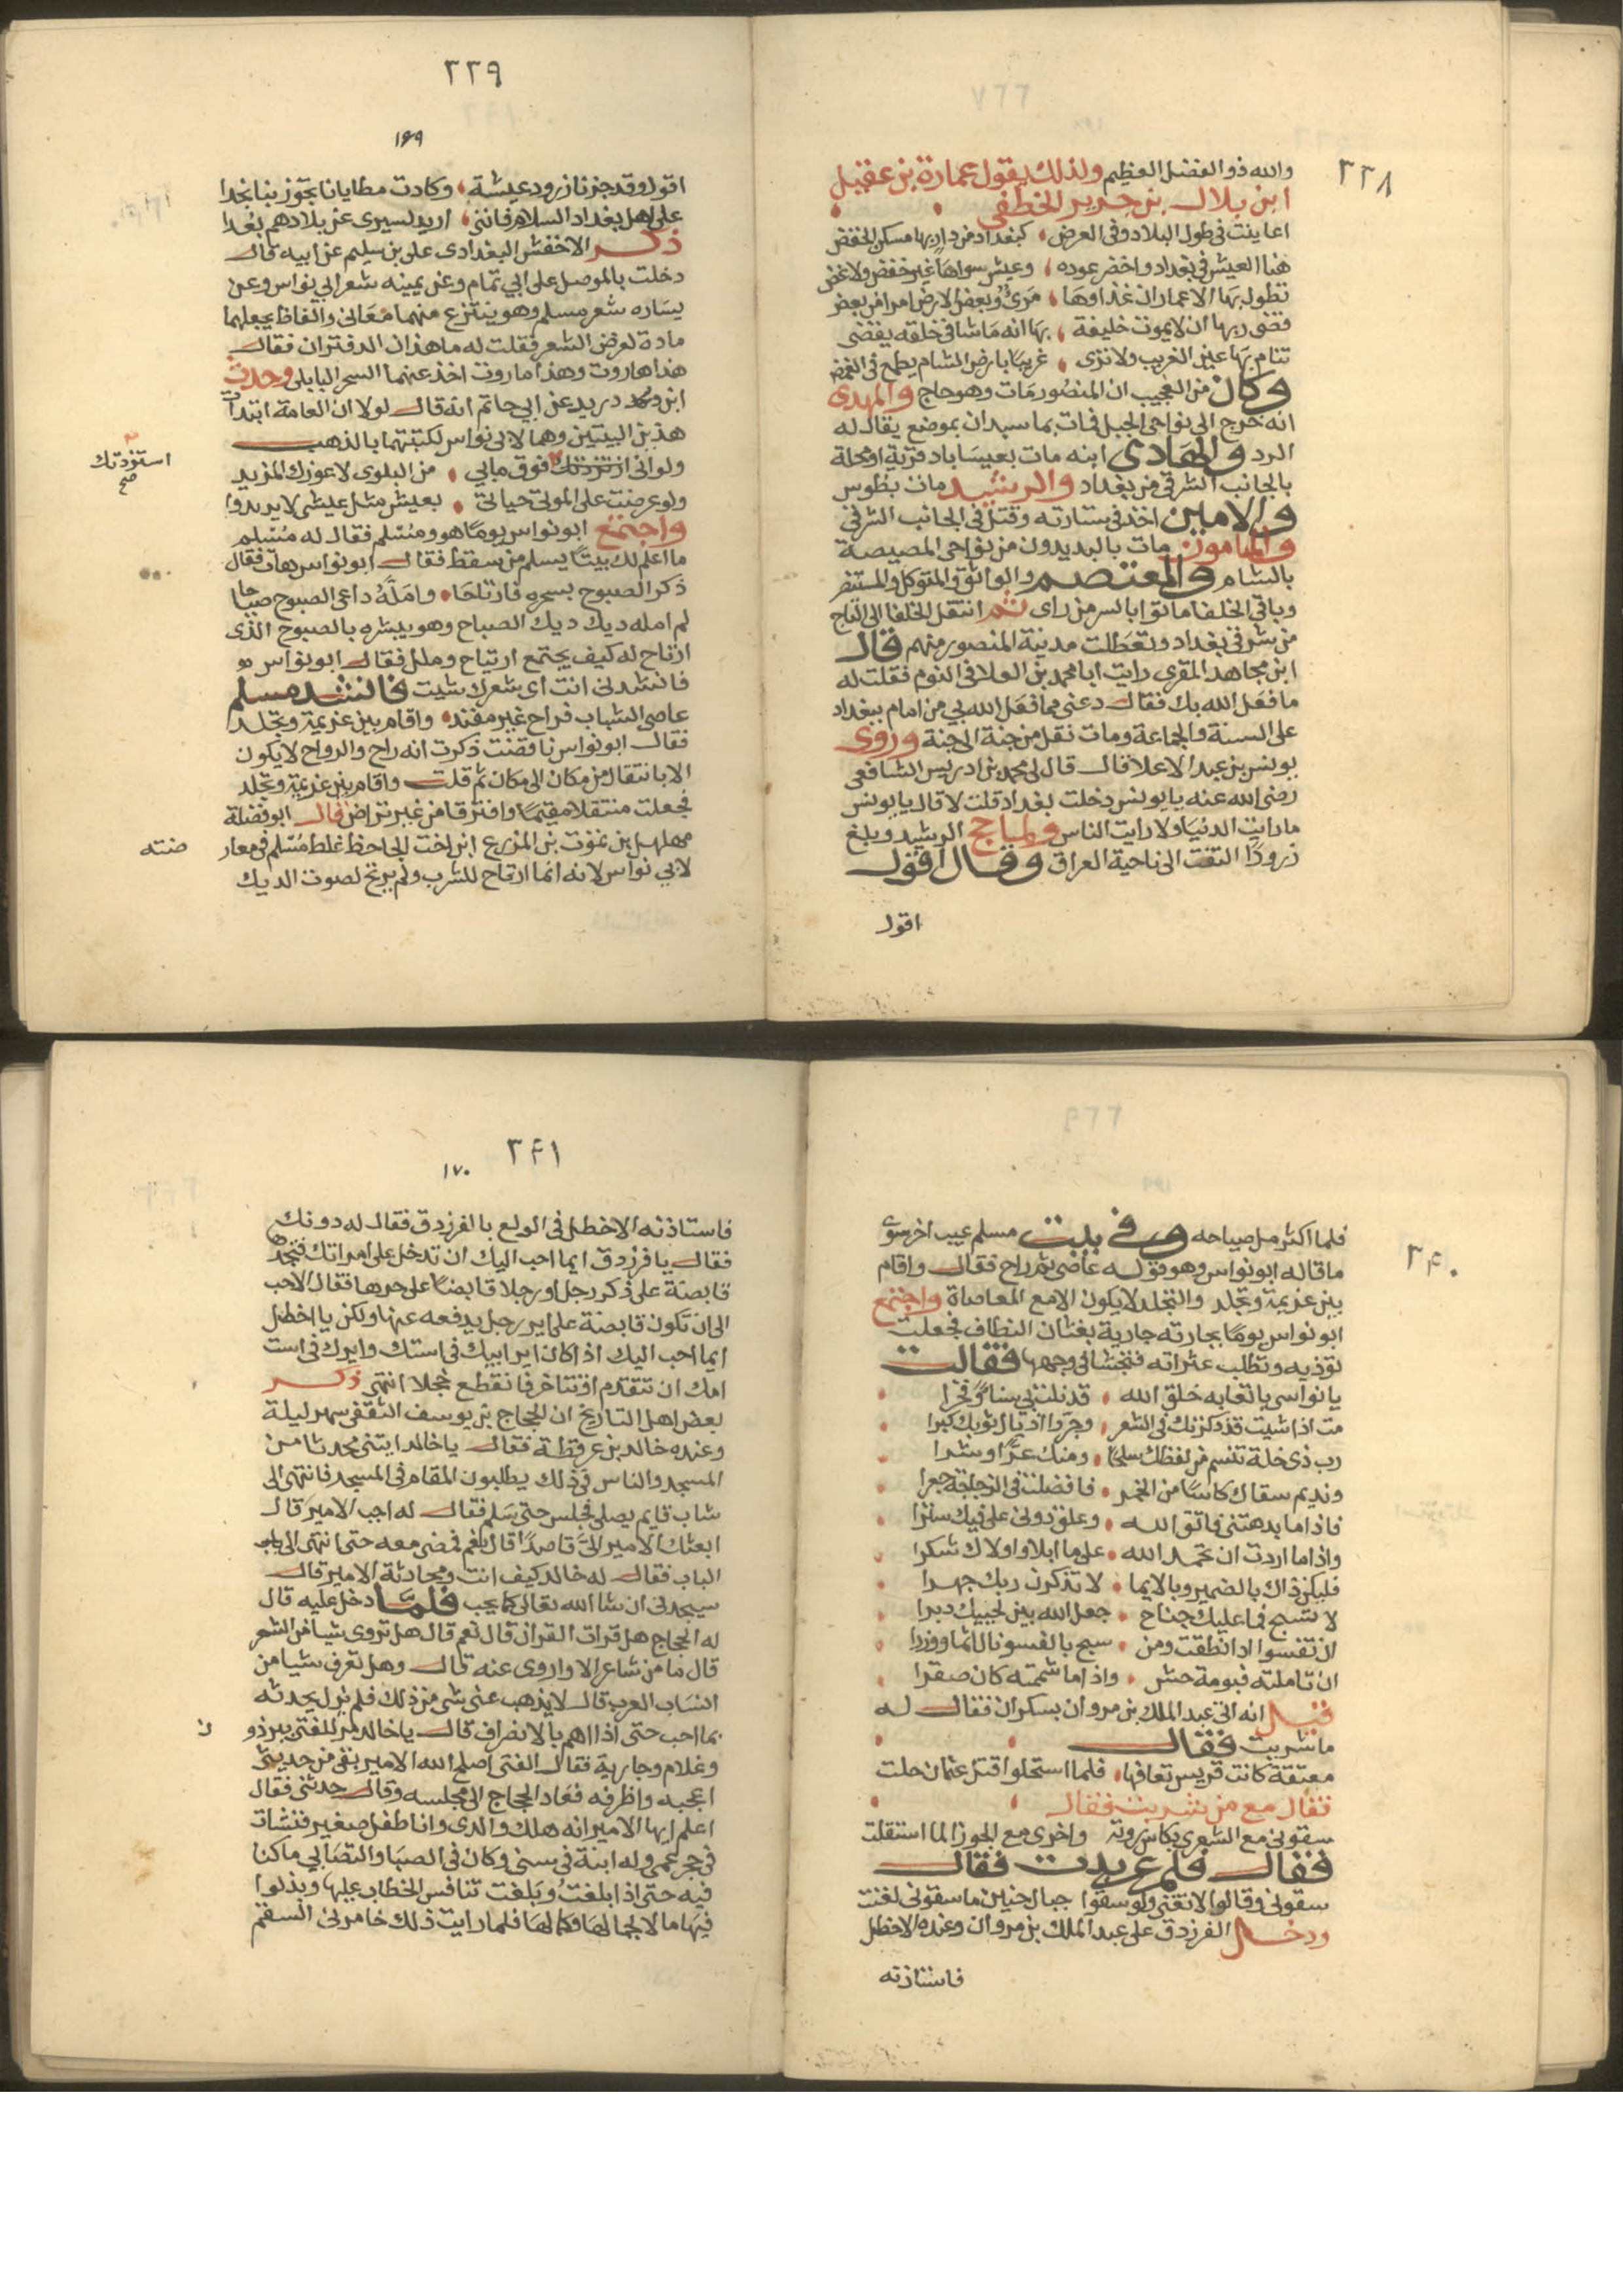 ٢٣٨
والله ذو الفضل العظيم ولذلك يقول عمارة بن عقيل
ابن بلال بن جرير الخطفي
اعاينت في طول البلاد وفي العرض كبغداد من دار بها مسكن الخفض
هنا العيش في بغداد واخضر عوده وعيش سواها غير خفض ولا غض
تطول بها الاعمار ان غذاوها مرئ وبعض الارض امرا من بعض
قضى ربها ان لا يموت خليفة بها انه ما شا في خلقه يقضى
تنام بها عين الغريب ولا ترى غريبا بارض الشام يطمع في الغمض
وكان من العجيب ان المنصور مات وهو حاج والمهدى
انه خرج الى نواحى الجبل فمات بما سبدان بموضع يقال له
الرد والهادى ابنه مات بعيساباد قرية او محلة
بالجانب الشرقى من بغداد والرشيد مات بطوس
والامين اخذ فى ستارته وقتل فى الجانب الشرقى
والمامون مات بالبديدون من نواحى المصيصة
بالشام والمعتصم والواثق والمتوكل والمستنصر
وباقى الخلفا ماتوا بالسر من راى ثم انتقل الخلفا الى التاج
من شرقى بغداد وتعطلت مدينة المنصور منهم قال
ابن مجاهد المقرى رايت ابا محمد بن العلا فى النوم فقلت له
ما فعل الله بك فقال دعنى مما فعل الله بى من اقام ببغداد
على السنة والجماعة ومات نقل من جنة الى جنة وروى
يونس بن عبد الاعلا قال قال لى محمد بن ادريس الشافعى
رضى الله عنه يا يونس دخلت بغداد قلت لا قال يا يونس
ما رايت الدنيا ولا رايت الناس ولما حج الرشيد وبلغ
زرودًا التفت الى ناحية العراق وقال اقول
اقول
٢٣٩
١٦٩
اقول وقد جزنا زرود عيشة وكادت مطايانا تجوز بنا نجدا
على اهل بغداد السلام فاننى اريد لسيرى عن بلادهم بعدا
ذكر الاخفش البغدادى على بن سليم عن ابيه قال
دخلت بالموصل على ابي تمام وعن يمينه شعر ابي نواس وعن
يساره شعر مسلم وهو ينتزع منهما معانى والفاظ يجعلهما
مادة لعرض الشعر فقلت له ما هذان الدفتران فقال
هذا هاروت وهذا ماروت اخذ عنهما السحر البابلى وحدث
ابن دريد عن ابي حاتم انه قال لولا ان العامة ابتدات
هذين البيتين وهما لابى نواس لكتبتهما بالذهب
ولو انى فوق مابي من البلوى لاعوزك المزيد
استزدتك
صح
ولو عرضت على الموتى حياتى بعيش مثل عيشى لا يريدوا
واجتمع ابو نواس يوما هو ومسلم فقال له مسلم
ما اعلم لك بيتا يسلم من سقط فقال ابو نواس هات فقال
ذكر الصبوح بسحره فارتاحا وامله داعى الصبوح صياحا
لم امله ديك ديك الصباح وهو يبشره بالصبوح الذى
ارتاح له كيف يجتمع ارتياح وملل فقال ابو نواس
فانشدنى انت اى شعرك شيت فانشد مسلم
عاصى الشباب فراح غير مفند واقام بين عزيمة وتجلد
فقال ابو نواس ناقضت ذكرت انه راح والرواح لا يكون
الا بانتقال من مكان الى مكان ثم قلت واقام بين عزيمة وتجلد
فجعلت منتقلا مقيما وافترقا من غير تراض قال ابو فضلة
مهلهل بن يموت بن المزرع ابن اخت الجاحظ غلط مسلم فى معار
ضته
لابي نواس لانه انما ارتاح للشرب ولم يرتح لصوت الديك
٢٤٠
فلما اكثر مل صياحه وفى بيت مسلم عيب اخر سوى
ما قاله ابو نواس وهو قوله عاصى ثم راح فقال واقام
بين عزيمة وتجلد والتجلد لا يكون الا مع المعاصاة واجتمع
ابو نواس يوما بجارته جارية بغتان النطاف فجعلت
توذيه وتطلب عثراته فتجشا فى وجهها فقالت
يا نواسى يا نفاية خلق الله قد نلت بي سنا وفخرا
مت اذا شيت قد ذكرتك فى الشعر وجرر اذيال ثوبك كبرا
رب ذى خلة تنسم من لفظك سلحا ومنك عرًا وشرا
ونديم سقاك كاسا من الخمر فافضلت فى الزجاجة جعرا
فاذا ما بدهتنى فاتق الله وعلق دونى على فيك سترا
واذا ما اردت ان تحمد الله على ما ابلا واولاك شكرا
فليكن ذاك بالضمير وبالايما لا تذكرن ربك جهرا
لا تسبح فما عليك جناح جعل الله بين لحييك دبرا
ان تفسوا اذا نطقت ومن سبح بالفسو نال اثما ووزرا
ان تاملته فبومة حش واذا ما شممته كان صقرا
قيل انه اتى عبد الملك بن مروان بسكران فقال له
ما شربت فقال
معتقة كانت قريس تعافها فلما استحلوا قتل عثمان حلت
فقال مع من شربت فقال
سقونى مع الشعرى بكاس روية واخرى مع الجوزا لما استقلت
فقال فلم عربدت فقال
سقونى وقالوا لا تغنى ولو سقوا جبال حنين ما سقونى لغنت
ودخل الفرزدق على عبد الملك بن مروان وعنده الاخطل
فاستاذنه
٢٤١
١٧٠
فاستاذنه الاخطل فى الولع بالفرزدق فقال له دونك
فقال يا فرزدق ايما احب اليك ان تدخل على امراتك فتجدها
قابضة على ذكر رجل او رجلا قابضا على حرها فقال الاحب
الى ان تكون قابضة على اير رجل يدفعه عنها ولكن يا اخطل
ايما احب اليك اذا كان اير ابيك فى استك وايرك فى است
امك ان تتقدم او تتاخر فانقطع خجلا انتهى ذكر
بعض اهل التاريخ ان الحجاج بن يوسف الثقفى سهر ليلة
وعنده خالد بن عرفطة فقال يا خالد ايتنى محدثا من
المسجد والناس فى ذلك يطلبون المقام فى المسجد فانتهى الى
شاب قايم يصلى فجلس حتى سلم فقال له اجب الامير قال
ابعثك الامير الىّ قاصدًا قال نعم فمضى معه حتى انتهى الى
الباب فقال له خالد كيف انت ومحادثة الامير قال
سيجدنى ان شا الله تعالى كما يحب فلما دخل عليه قال
له الحجاج هل قرات القران قال نعم قال هل تروى شيا من الشعر
قال ما من شاعر الا واروى عنه قال وهل تعرف شيا من
انساب العرب قال لا يذهب عنى شى من ذلك فلم يزل يحدثه
بما احب حتى اذا اهم بالانصراف قال يا خالد مر للفتى ببرذو
ن
وغلام وجارية فقال الفتى اصلح الله الامير بقى من حديثى
اعجبه واظرفه فعاد الحجاج الى مجلسه وقال حدثنى فقال
اعلم ايها الامير انه هلك والدى وانا طفل صغير فنشات
فى حجر عمى وله ابنة فى سنى وكان فى الصبا والتصابي ما كنا
فيه حتى اذا ابلغت وبلغت تنافس الخطاب عليها وبذلوا
فيها مالا لجمالها وكمالها فلما رايت ذلك خامرنى السقم